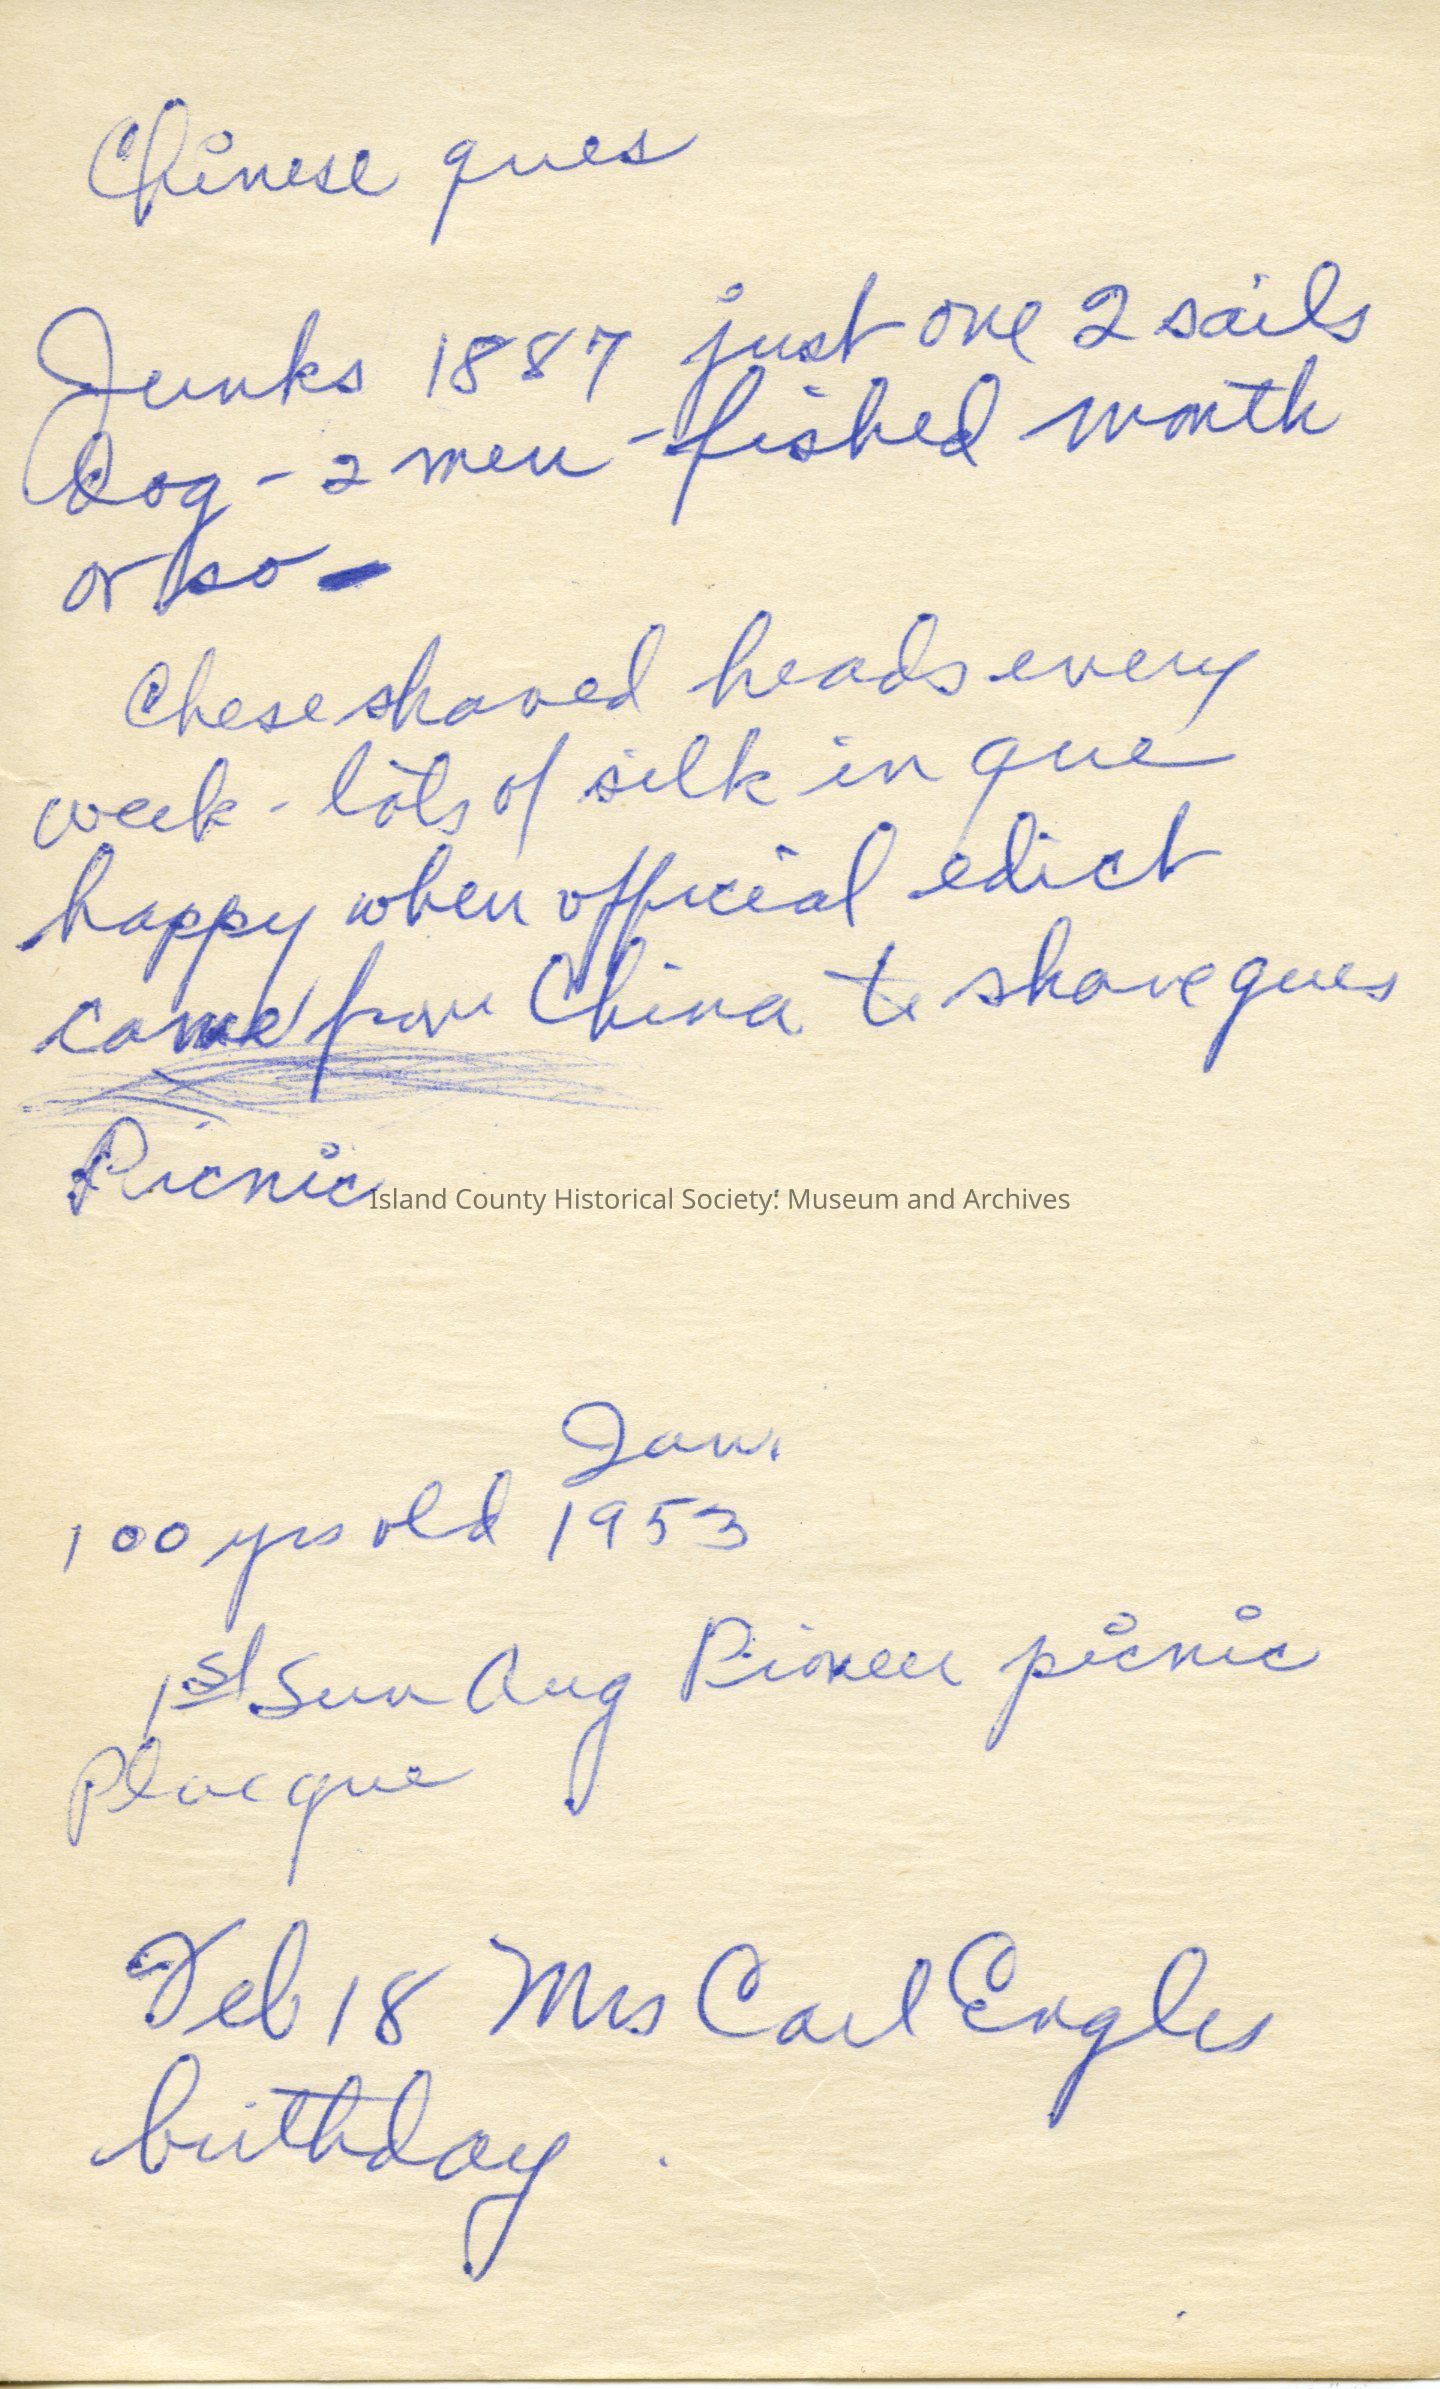 Chinese ques
Junks 1887 just one 2 sails
Dog - 2 men - fished month
or so -
Chese shaved heads every
week - lots of silk in que
happy when official edict
came from China to shave ques
Picnic
Island County Historical Society: Museum and Archives
Jan.
100 yrs old 1953
1st Sun Aug Pioneer picnic
Placque
Feb 18 Mrs Carl Engles
birthday